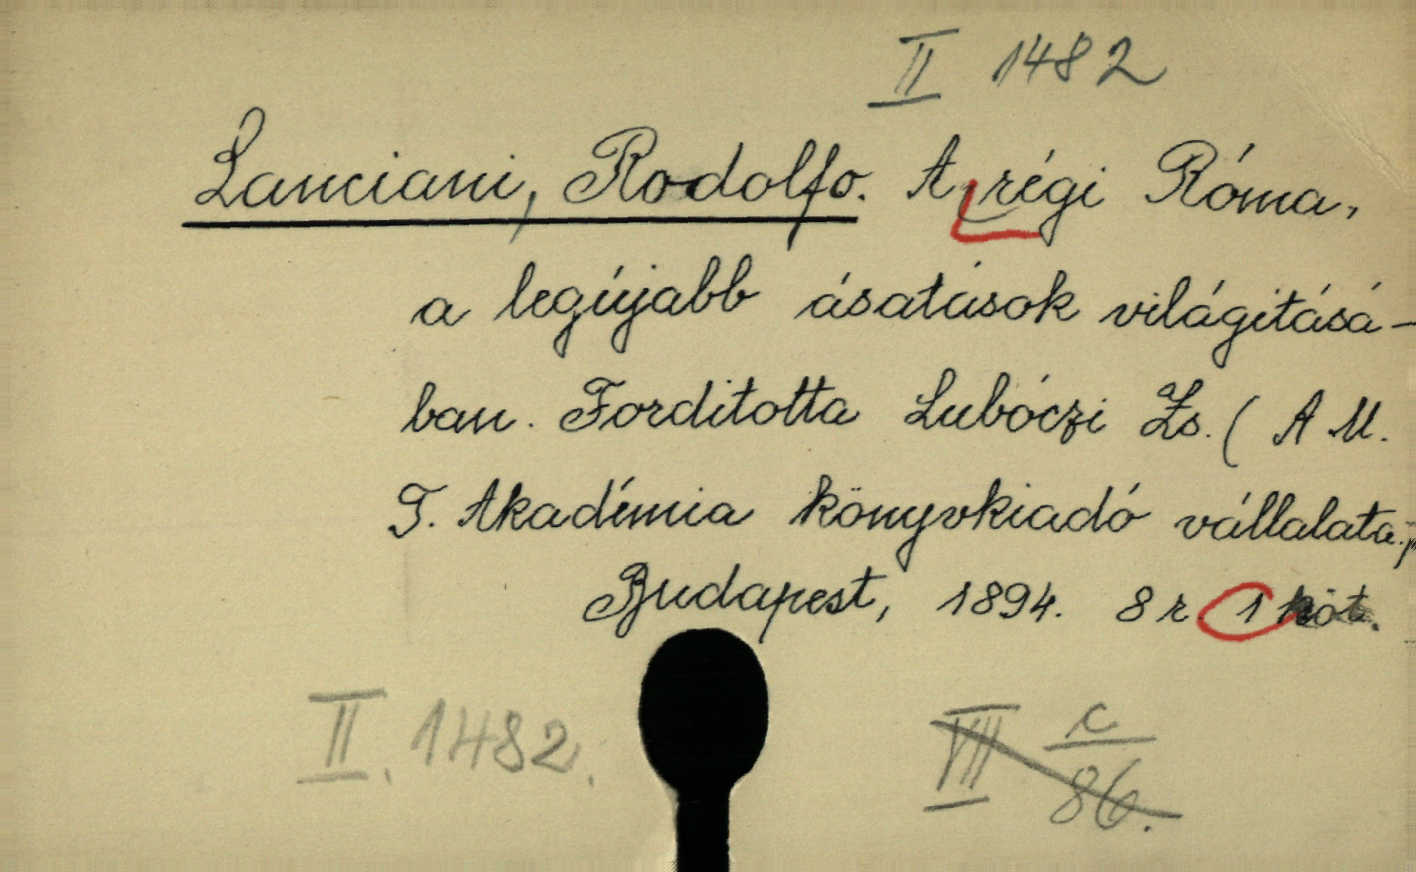 II 1482
Lanciani, Rodolfo. A régi Róma,
a legújabb ásatások világitásá-
ban. Forditotta Lubóczi Zs. (A M.
T. Akadémia könyvkiadó vállalata.)
Budapest, 1894. 8 r. 1 köt.
II. 1482.
VII c/86.